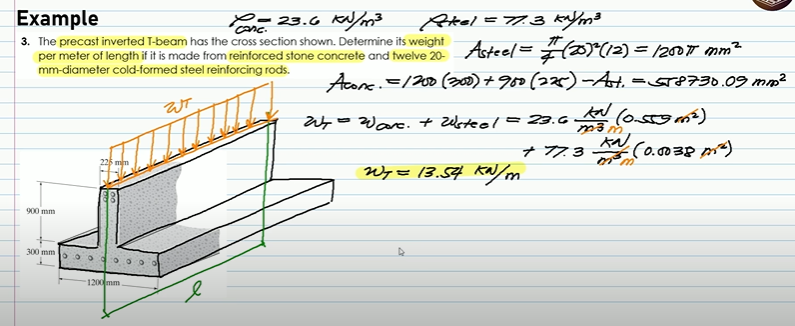 Example
ρconc. = 23.6 kN/m³ ρsteel = 77.3 kN/m³
3. The precast inverted T-beam has the cross section shown. Determine its weight
per meter of length if it is made from reinforced stone concrete and twelve 20-
mm-diameter cold-formed steel reinforcing rods.
Asteel = π/4 (20)²(12) = 1200π mm²
Aconc. = 1200 (300) + 900 (225) - Ast. = 558730.09 mm²
wT = wconc. + wsteel = 23.6 kN/m³ (0.559 m²)
+ 77.3 kN/m³ (0.0038 m²)
wT = 13.54 kN/m
wT
225 mm
900 mm
300 mm
1200 mm
l